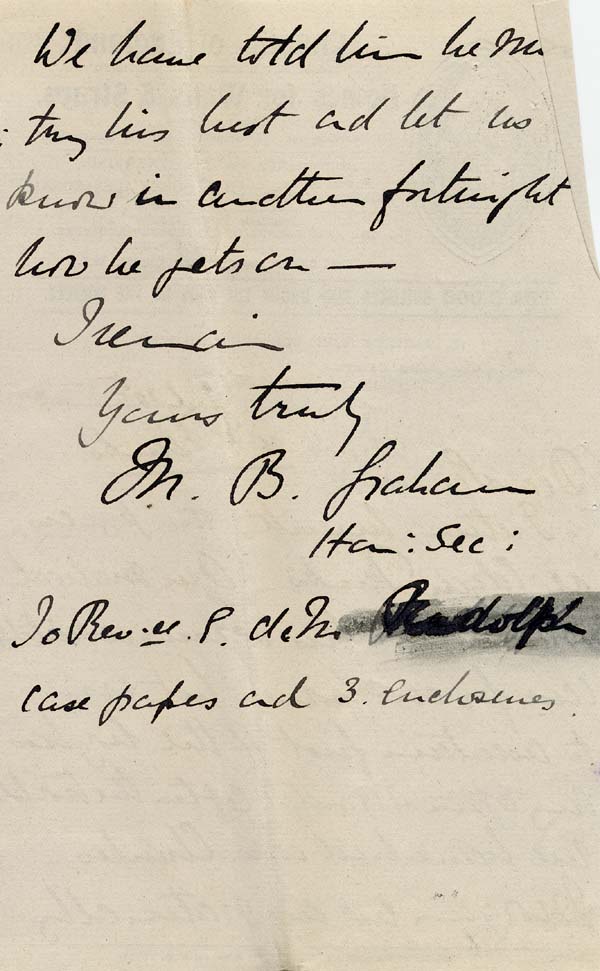 We have told him he
try his best and let us
know in another fortnight
how he gets on —
I remain
Yours truly
M. B. Graham
Hon: Sec:
To Rev. E. P. de M. Rudolph
case papers and 3. enclosures.